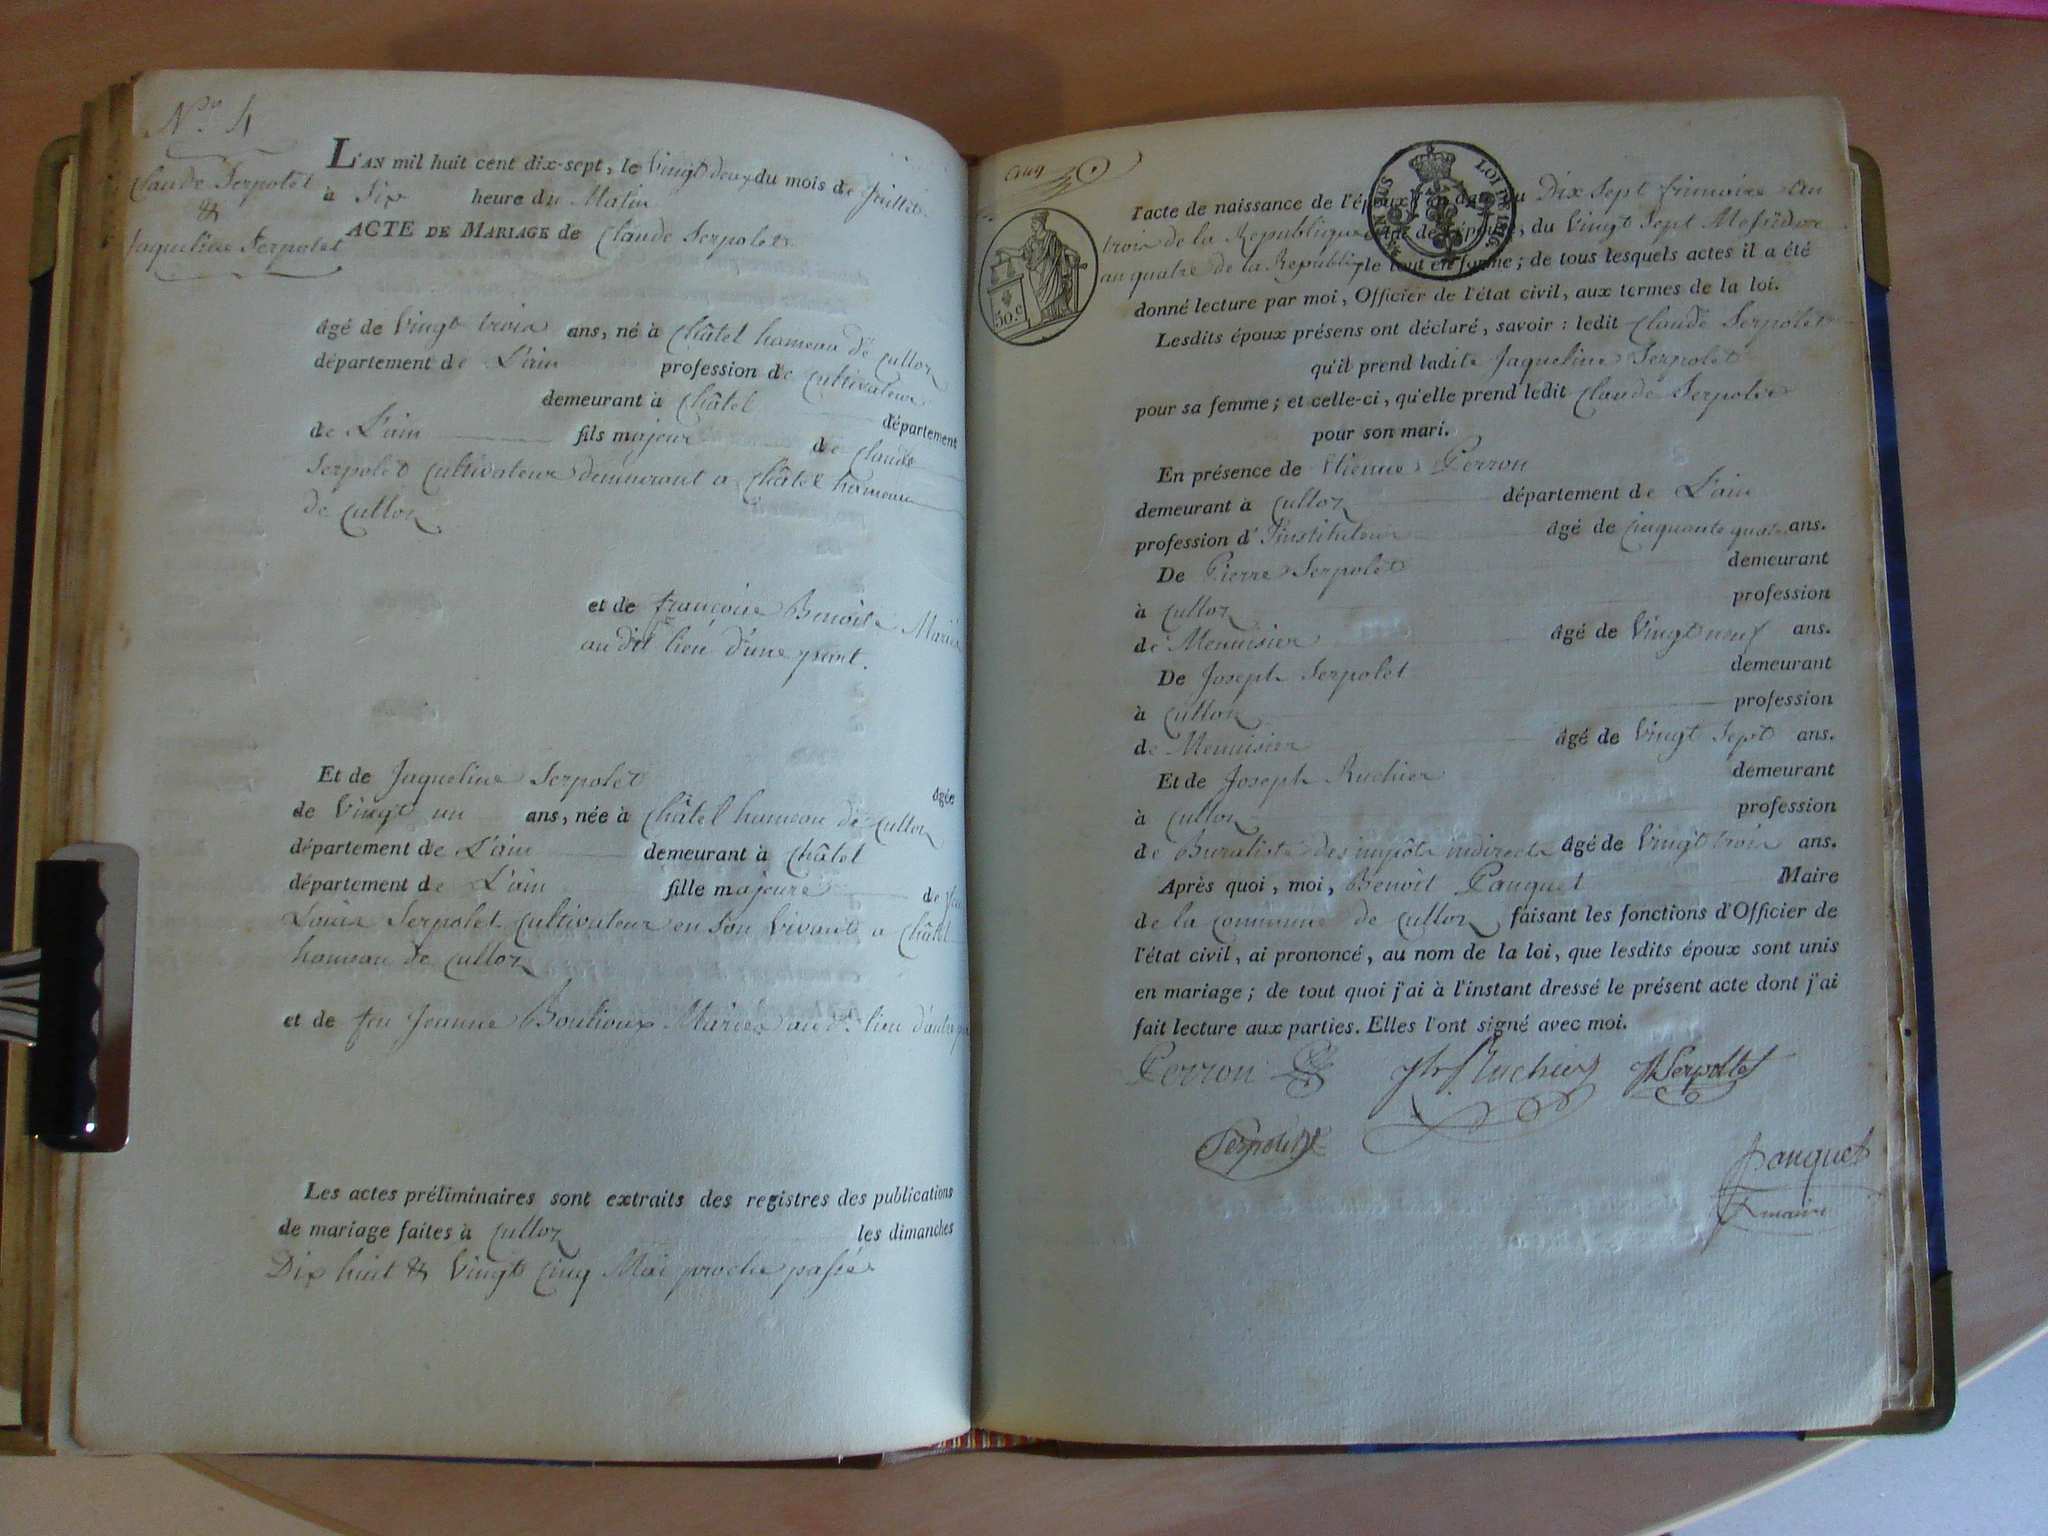 N.º 4
Claude Serpolet
&
Jaqueline Serpolet
L'AN mil huit cent dix-sept, le Vingt deux du mois de Juillet
à Six heure du Matin
ACTE DE MARIAGE de Claude Serpolet
âgé de Vingt trois ans, né à Châtel hameau de Culloz
département de L'ain profession de Cultivateur
demeurant à Châtel département
de L'ain fils majeur de Claude
Serpolet Cultivateur demeurant a Châtel hameau
de Culloz
et de françoise Benoite Mariés
au dit lieu d'une part.
Et de Jaqueline Serpolet âgée
de Vingt un ans, née à Châtel hameau de Culloz
département de L'ain demeurant à Châtel
département de L'ain fille majeure de feu
Louis Serpolet Cultivateur en son Vivant a Châtel
hameau de Culloz
et de feu Jeanne Boulioux Mariés au dt. lieu d'autre
Les actes préliminaires sont extraits des registres des publications
de mariage faites à Culloz les dimanches
Dix huit & Vingt Cinq Mai proche passé
Cinq
TIMB. ROYAL
LOI DE 1816
50.c
l'acte de naissance de l'époux en date du Dix Sept frimaire an
trois de la Republique celui de l'épouse, du Vingt Sept Messidor
an quatre de la Republique le tout en forme; de tous lesquels actes il a été
donné lecture par moi, Officier de l'état civil, aux termes de la loi.
Lesdits époux présens ont déclaré, savoir : ledit Claude Serpolet
qu'il prend ladite Jaqueline Serpolet
pour sa femme; et celle-ci, qu'elle prend ledit Claude Serpolet
pour son mari.
En présence de Etienne Perron
demeurant à Culloz département de L'ain
profession d'Instituteur âgé de Cinquante quatre ans.
De Pierre Serpolet demeurant
à Culloz profession
de Menuisier âgé de Vingt neuf ans.
De Joseph Serpolet demeurant
à Culloz profession
de Menuisier âgé de Vingt Sept ans.
Et de Joseph Ruchier demeurant
à Culloz profession
de Buraliste des impôts indirects âgé de Vingt trois ans.
Après quoi, moi, Benoit Panquet Maire
de la Commune de Culloz faisant les fonctions d'Officier de
l'état civil, ai prononcé, au nom de la loi, que lesdits époux sont unis
en mariage; de tout quoi j'ai à l'instant dressé le présent acte dont j'ai
fait lecture aux parties. Elles l'ont signé avec moi.
Perron Jh Ruchier Jh Serpollet
Serpollet
Panquet
maire